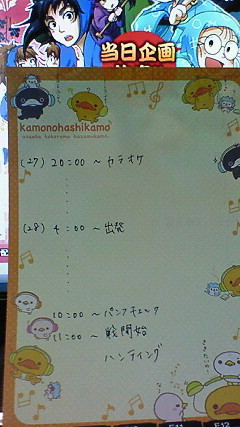 当日企画
kamonohashikamo
(27) 20:00 ~ カラオケ
(28) 4:00 ~ 出発
10:00 ~ パンフチェック
11:00 ~ 戦開始
ハンティング
F11 F12